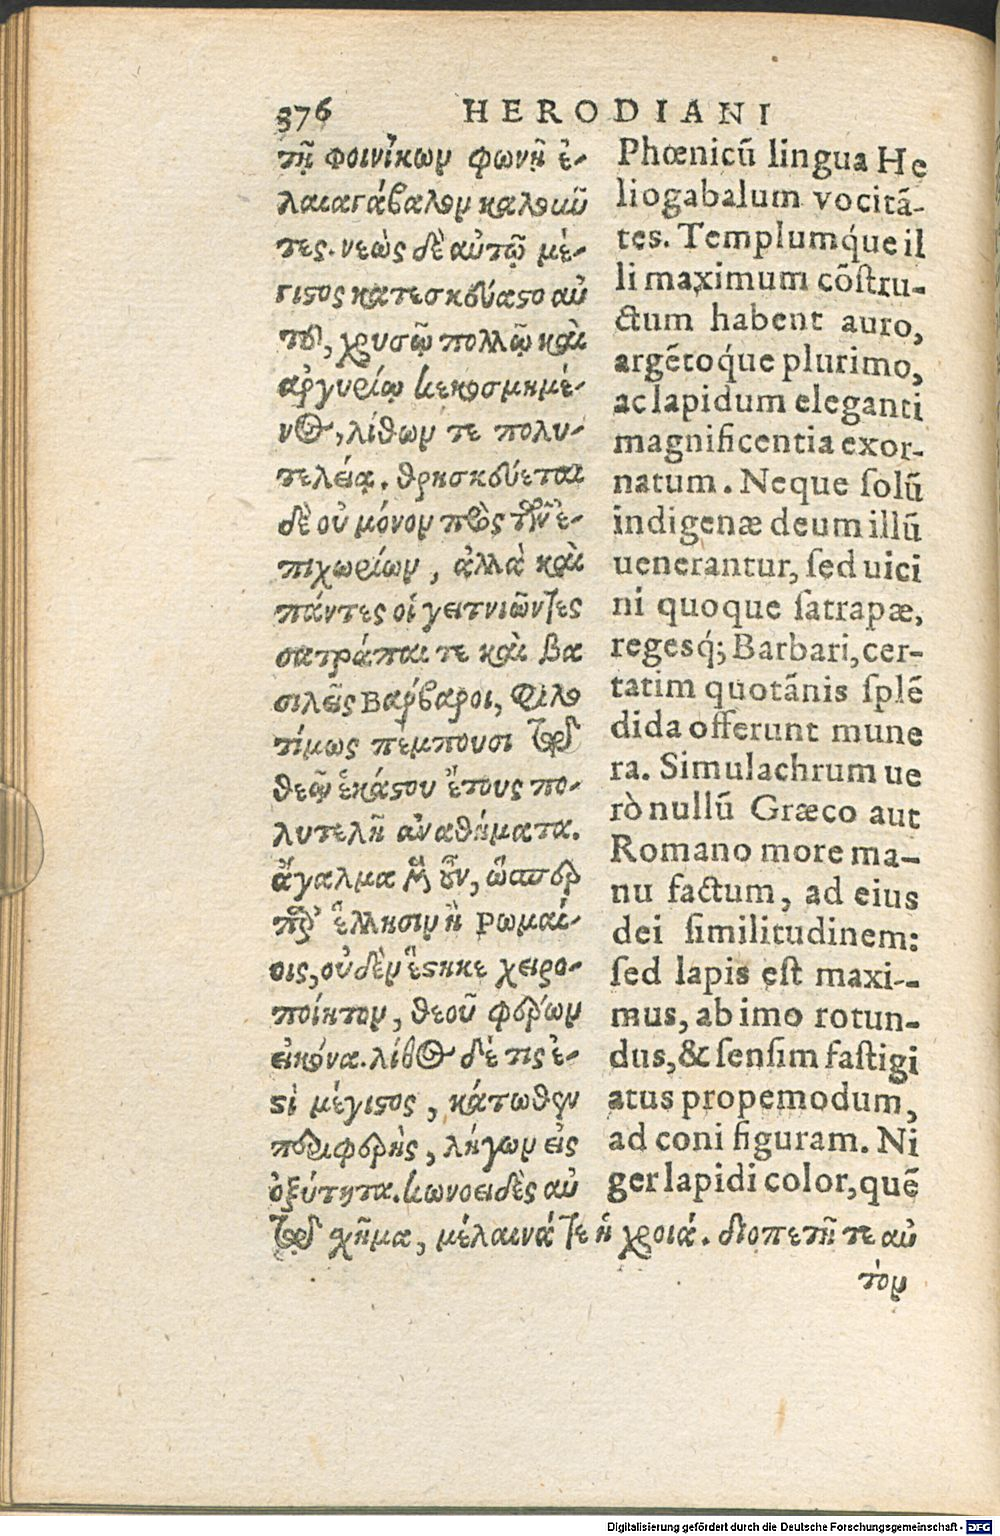 376 HERODIANI
τῇ φοινίκων φωνῇ ἐ-
λαιαγάβαλον καλοῦν
τες. νεὼς δὲ αὐτῷ μέ-
γιστος κατεσκεύαστο αὐ
τοῦ, χρυσῷ πολλῷ καὶ
ἀργυρίῳ κεκοσμημέ-
νος, λίθων τε πολυ-
τελείᾳ. θρησκεύεται
δὲ οὐ μόνον πρὸς τῶν ἐ-
πιχωρίων, ἀλλὰ καὶ
πάντες οἱ γειτνιῶντες
σατράπαι τε καὶ βα
σιλεῖς Βαρβαροι, φιλο
τίμως πέμπουσι τῷ
θεῷ ἑκάστου ἔτους πο-
λυτελῆ ἀναθήματα.
ἄγαλμα μὲν οὖν, ὥσπερ
παρ' ἕλλησιν ἢ Ρωμαί-
οις, οὐδὲν ἕστηκε χειρο-
ποίητον, θεοῦ φέρων
εἰκόνα. λίθος δέ τις ἐ-
στὶ μέγιστος, κάτωθεν
περιφερὴς, λήγων εἰς
ὀξύτητα. κωνοειδὲς αὐ
τῷ σχῆμα, μέλαινά τε ἡ χροιά. διοπετῆ τε αὐ
τὸν
Phœnicũ lingua He
liogabalum vocitã-
tes. Templumq́ue il
li maximum cõstru-
ctum habent auro,
argẽtoq́ue plurimo,
ac lapidum eleganti
magnificentia exor-
natum. Neque ſolũ
indigenæ deum illũ
uenerantur, ſed uici
ni quoque ſatrapæ,
regesq́; Barbari, cer-
tatim quotãnis ſplẽ
dida offerunt mune
ra. Simulachrum ue
rò nullũ Græco aut
Romano more ma-
nu factum, ad eius
dei ſimilitudinem:
ſed lapis eſt maxi-
mus, ab imo rotun-
dus, & ſenſim faſtigi
atus propemodum,
ad coni figuram. Ni
ger lapidi color, quẽ
Digitalisierung gefördert durch die Deutsche Forschungsgemeinschaft - DFG